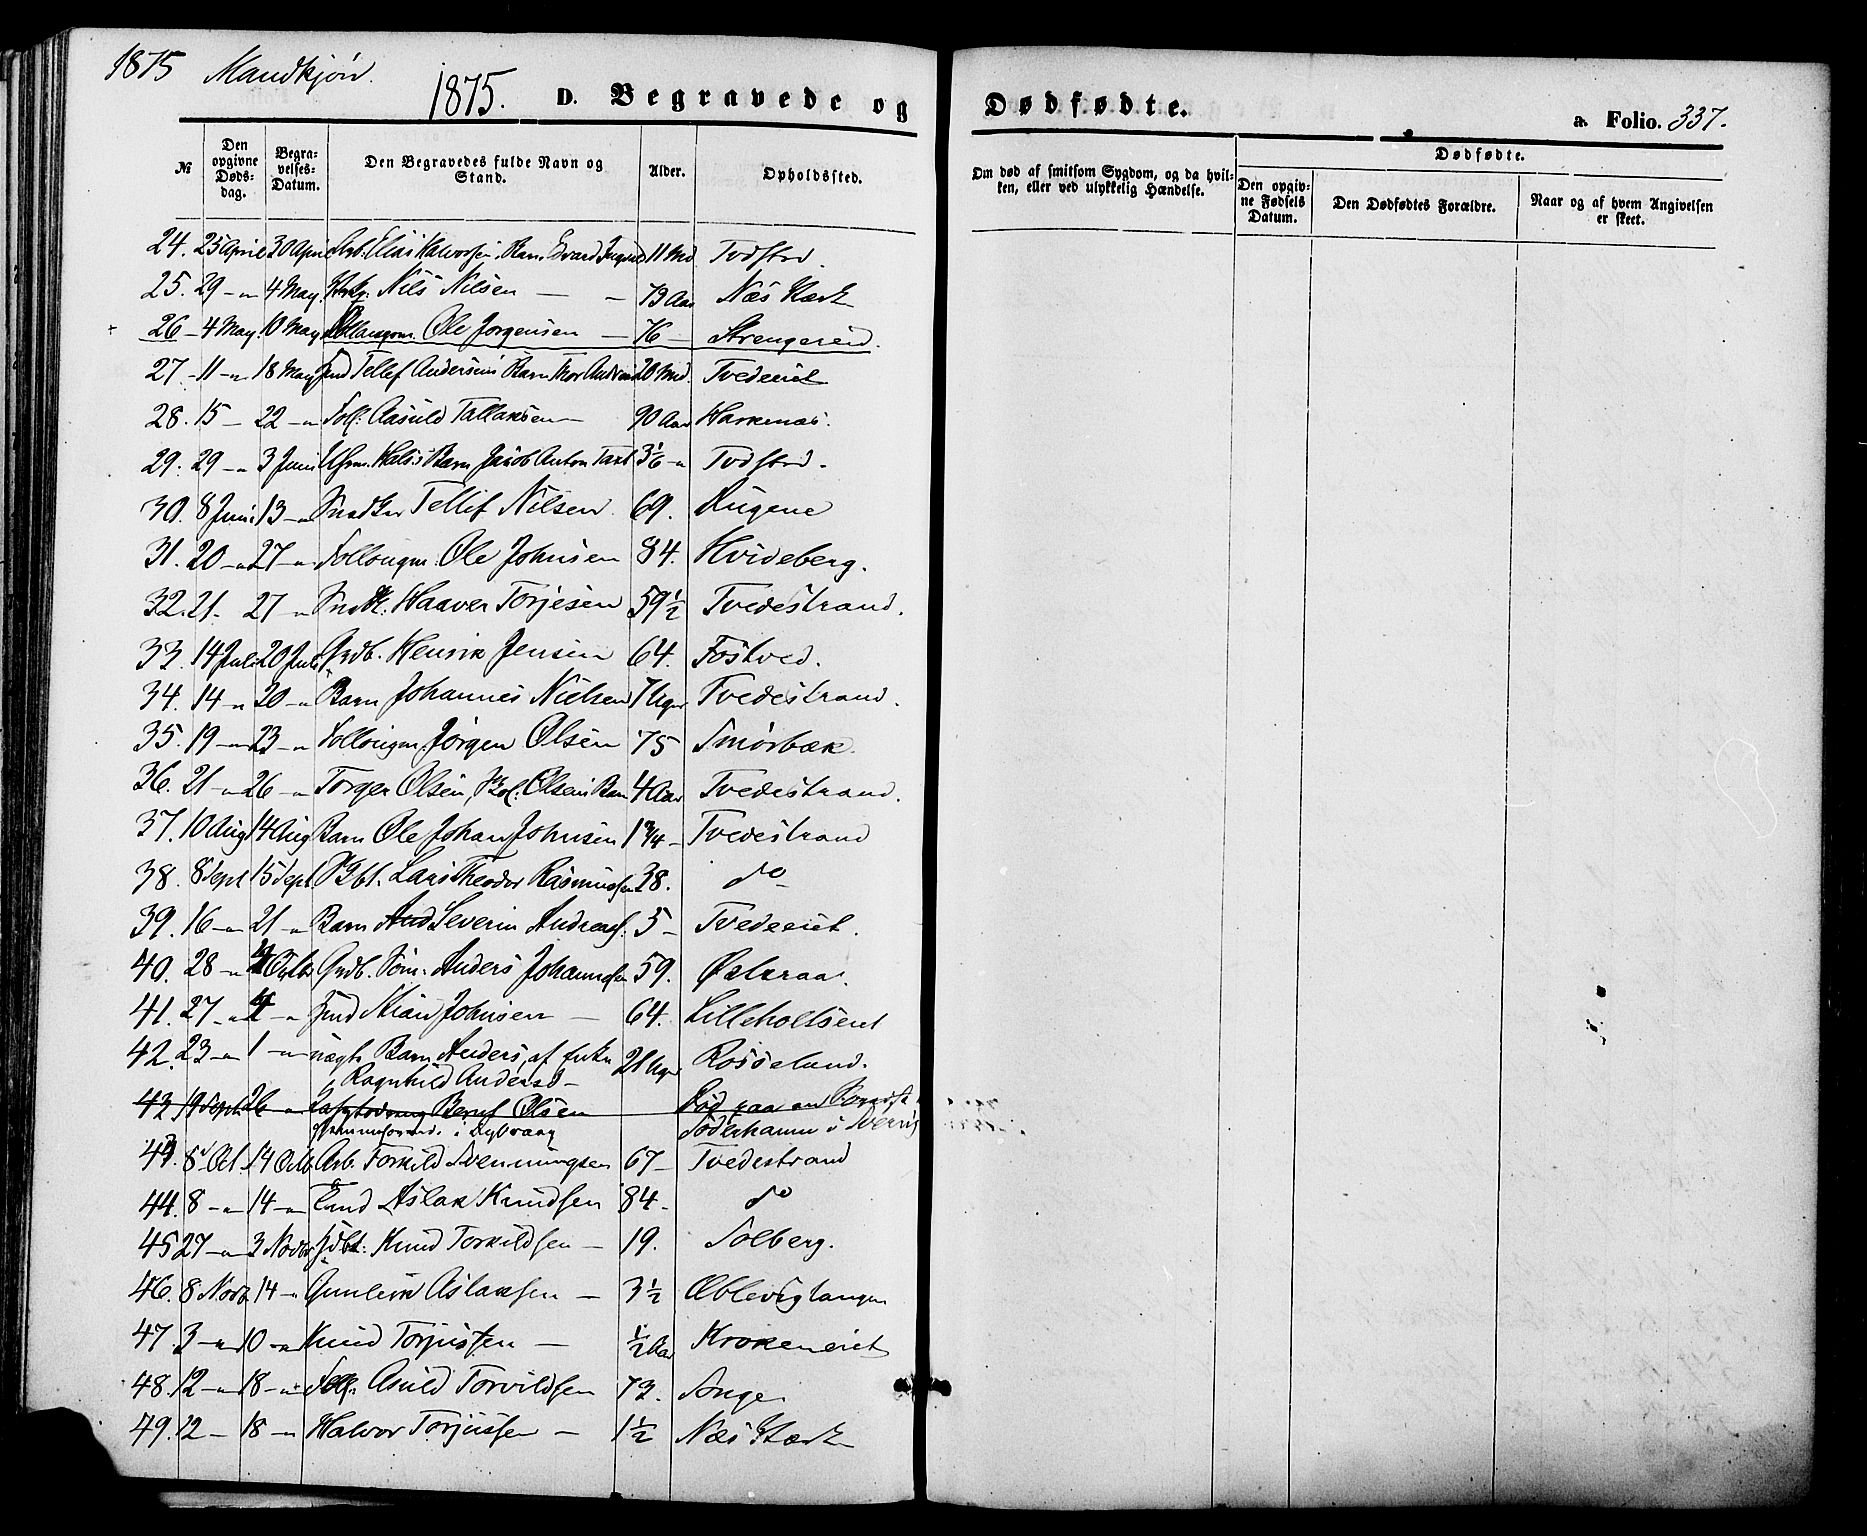 1875 Mandkjøn.
1875. D. Begravede og Dødfødte. a. Folio. 337.
№ Den opgivne Døds-dag. Begra-velses-Datum. Den Begravedes fulde Navn og Stand. Alder. Opholdssted. Om død af smitsom Sygdom, og da hvil-ken, eller ved ulykkelig Hændelse. Dødfødte. Den opgiv-ne Fødsels Datum. Den Dødfødtes Forældre. Naar og af hvem Angivelsen er skeet.
24. 25 April 30 April Arb. Elias Halvorsen Barn Edvard 11 Md Tvdstrd.
25. 29 - 4 May. Nils Nilsen - - 73 Aar Næs Værk
26 - 4 May. 10 May Ole Jørgensen - 76 - Strengereid.
27 - 11 - 18 May Ind Tellef Andersens Barn Thor 20 Md. Tvedeeiet
28. 15 - 22 - Foll: Aasuld Tallaksen - 90 Aar Havkenæs.
29. 29 - 3 Juni Barn Jacob Anton 3 1/6 - Tvdstrd.
30. 8 Juni 13 - Snedker Tellif Nilsen. 69. Rugene
31. 20 - 27 - Ole Johnsen 84. Hvideberg.
32. 21. 27 - Haaver Torjesen 59 1/2 Tvedestrand.
33. 14 Juli 20 Juli Grdb. Henrik Jensen 64. Fostved.
34. 14 - 20 - Barn Johannes Nielsen 7 Uger Tvedestrand.
35. 19 - 23 - Jørgen Olsen 75 Smørbæk.
36. 21 - 26 - Torger Olsen, Olsens Barn 4 Aar Tvedestrand.
37. 10 Aug 14 Aug Barn Ole Johan Johnsen 1 3/4 - Tvedestrand
38. 8 Sept 15 Sept Lars Theodor Rasmussen 38. do -
39. 16 - 21 - Barn And Severin Andreass: 5 - Tvedeeiet.
40. 28 - 4 Octbr Grdb. Søn. Anders Johannesen 59. Østeraa.
41. 27 - 4 - Ind Johnsen - 64. Lilleholtseiet
42. 23 - 1 - uægte Barn Anders, af Enke 2 Uger Rosseland.
Ragnhild Andersd -
43 19 Sept. 26 - Bernt Olsen Død paa en
i Dybvaag Söderhamn i Sverrig
43. 8 Oct. 14 Octb Arb. Torkild Svenningsen 67 - Tvedestrand
44. 8 - 14 - Aslak Knudsen 84. do
45 27 - 3 Novbr Knud Torkildsen - 19. Solberg.
46. 8 Novb. 14 - Gunleik Aslaksen - 3 1/2 Æblevigtangen
47. 3 - 10 - Knud Torjussen - 1/2 Aar Krokeneiet
48. 12 - 18 - Foll: Asuld Torvildsen 73. Songe
49. 12 - 18 - Halvor Torjussen - 1 1/2 Næs Værk